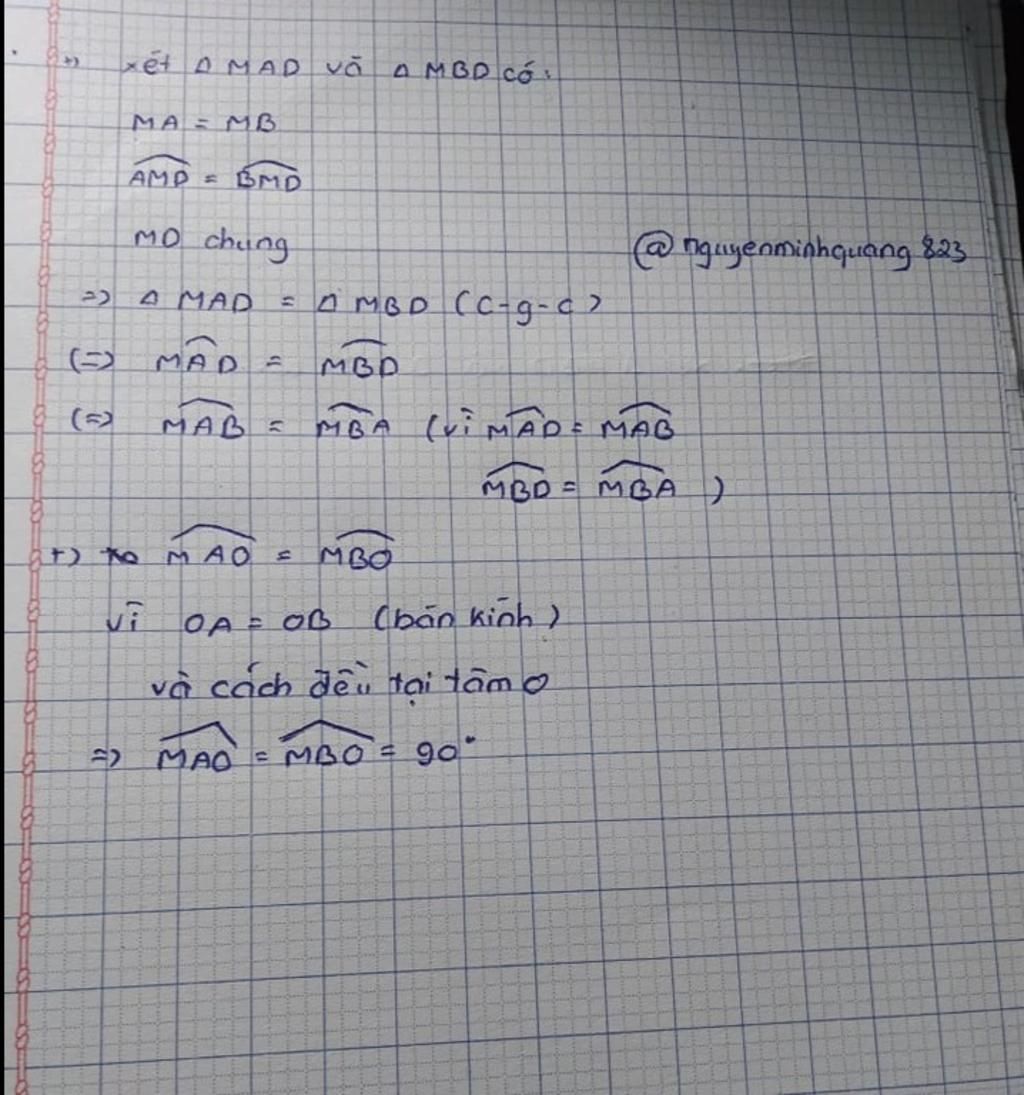 +) xét Δ MAD và Δ MBD có:
MA = MB
AMD = BMD
MD chung
@nguyenminhquang823
=> Δ MAD = Δ MBD (c-g-c)
(=) MAD = MBD
(=) MAB = MBA (vì MAD = MAB
MBD = MBA )
+) MAO = MBO
vì OA = OB (bán kính)
và cách đều tại tâm O
=> MAO = MBO = 90°